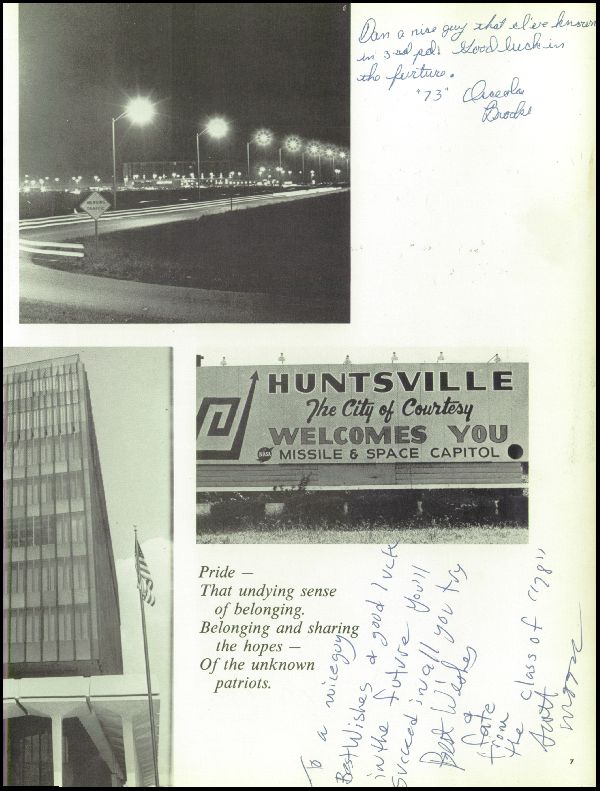 6
Dan a nice guy that I've known
in 3rd pd. Good luck in
the furture.
"73"
Brooks
MERGING
TRAFFIC
HUNTSVILLE
The City of Courtesy
WELCOMES YOU
NASA MISSILE & SPACE CAPITOL
Pride —
That undying sense
of belonging.
Belonging and sharing
the hopes —
Of the unknown
patriots.
To a nice guy
Best Wishes & good luck
in the future You'll
Succeed in all you try
Best Wishes
&
fate
from
the class of "78"
Scott
Moore
7